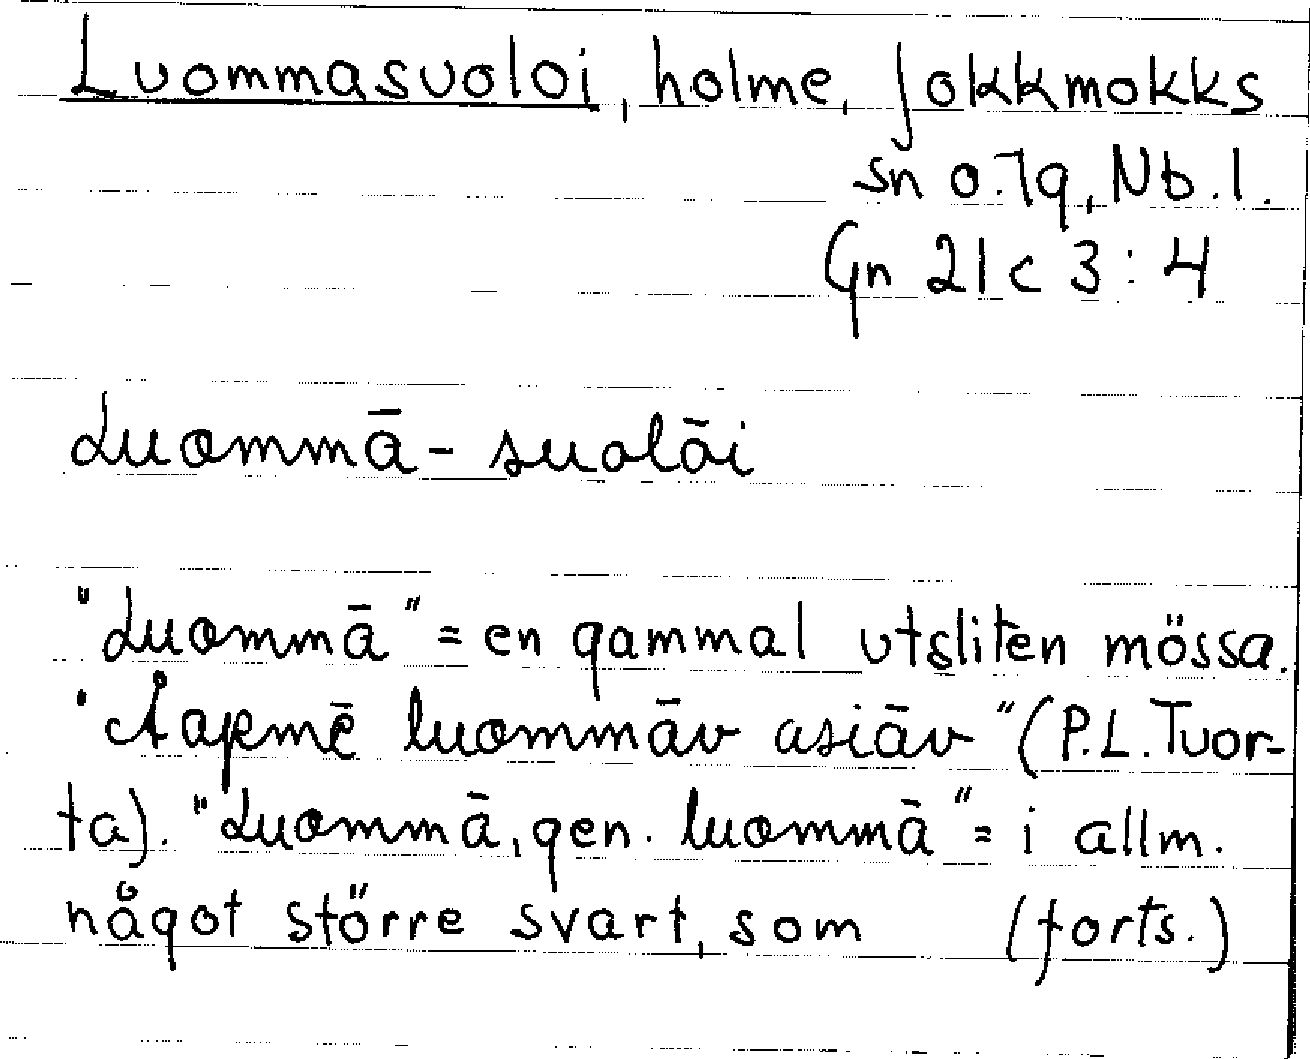 Luommasuoloi, holme, Jokkmokks
sn o. tg, Nb. l.
Gn 21 c 3 : 4
Luommā - suolāi
"Luommā" = en gammal utsliten mössa.
"Aapmē luommāv asiāv" (P.L. Tuor-
ta). "Luommā, gen. luommā" = i allm.
något större svart, som (forts.)